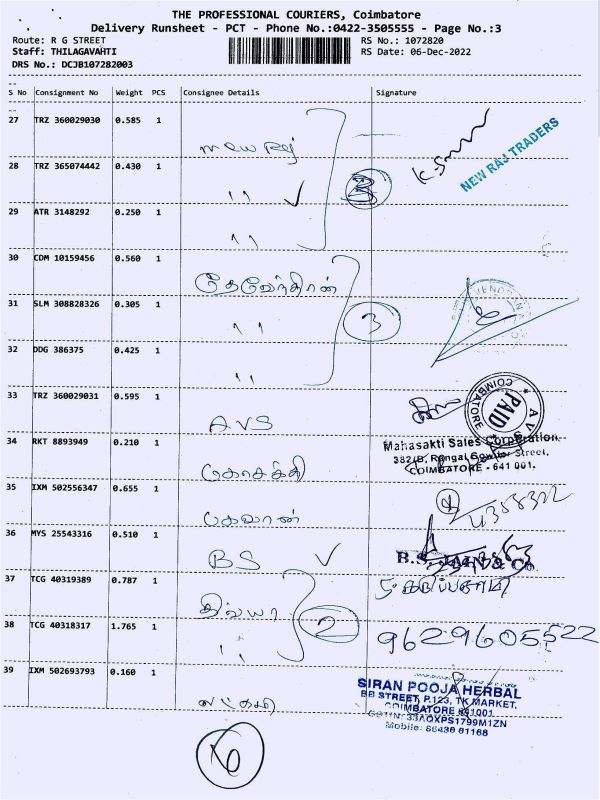 THE PROFESSIONAL COURIERS, Coimbatore
Delivery Runsheet - PCT - Phone No.:0422-3505555 - Page No.:3
Route: R G STREET RS No.: 1072820
Staff: THILAGAVAHTI RS Date: 06-Dec-2022
DRS No.: DCJB107282003
S No Consignment No Weight PCS Consignee Details Signature
27 TRZ 360029030 0.585 1
New Raj K. NEW RAJ TRADERS
28 TRZ 365074442 0.430 1
,, ✓ 3
29 ATR 3148292 0.250 1
,,
30 CDM 10159456 0.560 1
தேவேந்திரன்
31 SLM 308828326 0.305 1
,, 3
32 DDG 386375 0.425 1
,,
33 TRZ 360029031 0.595 1
AVS A V S PAID COIMBATORE
34 RKT 8893949 0.210 1 Mahasakti Sales Corporation
382/B, Rangai Gowder Street,
COIMBATORE - 641 001.
கோசக்தி
35 IXM 502556347 0.655 1
பகவான்
36 MYS 25543316 0.510 1
BS ✓ B.S. & Co.
37 TCG 40319389 0.787 1
திவ்யா 2
38 TCG 40318317 1.765 1
,, 9629605522
39 IXM 502693793 0.160 1
SIRAN POOJA HERBAL
BB STREET, P.123, TK MARKET,
COIMBATORE 641001
GSTIN: 33AOXPS1799M1ZN
Mobile: 86430 81168
6